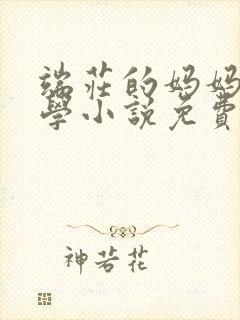 端莊的媽媽
學小説免費
神若花